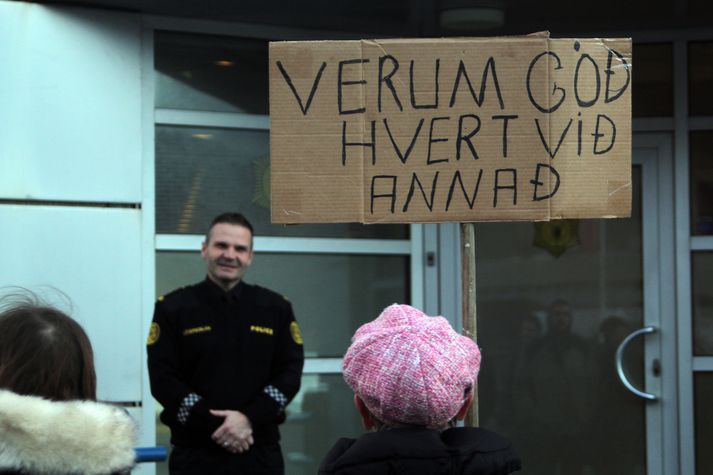 VERUM GÓÐ
HVERT VIÐ
ANNAÐ
POLICE